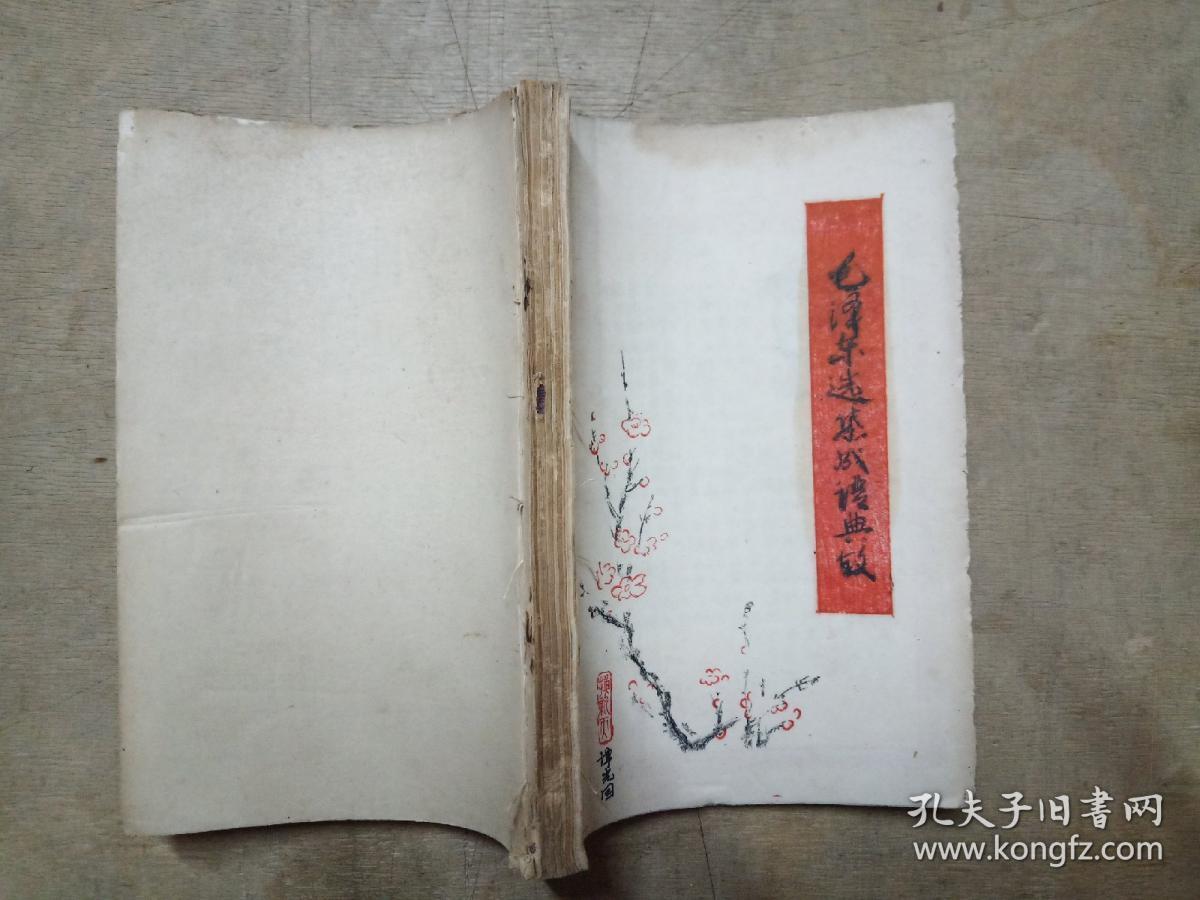 毛泽东选集成语典故
孔夫子旧书网
www.kongfz.com